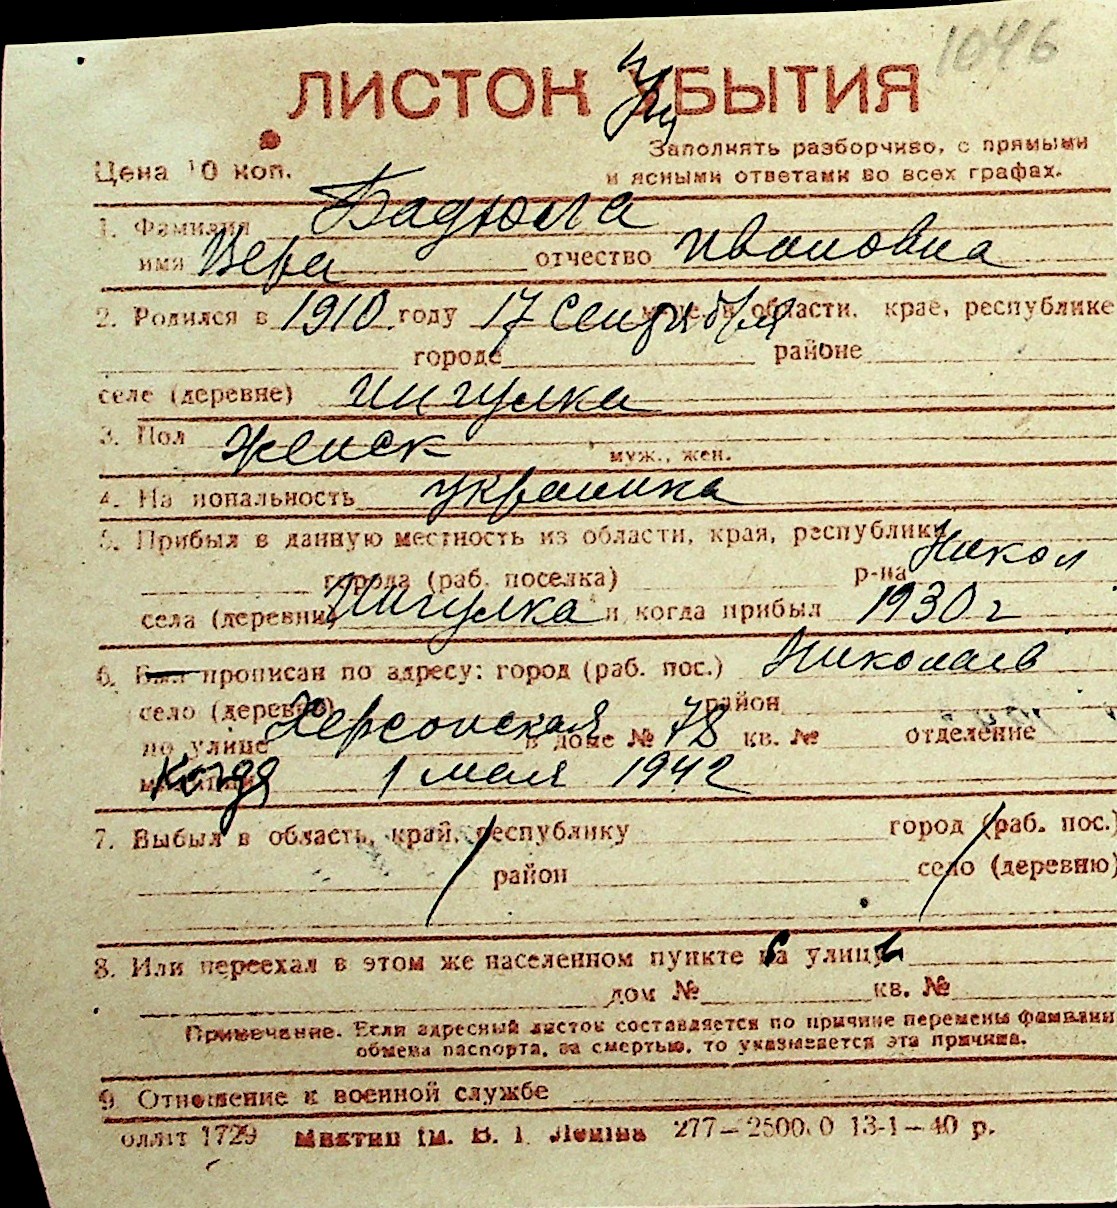 1046
ЛИСТОК УБЫТИЯ
Цена 10 коп.
Заполнять разборчиво, с прямыми
и ясными ответами во всех графах.
1. Фамилия Бадюла
имя Вера отчество Ивановна
2. Родился в 1910 году 17 Сентября области, крае, республике
городе районе
селе (деревне) Ингулка
3. Пол женск муж., жен.
4. Национальность украинка
5. Прибыл в данную местность из области, края, республики
города (раб. поселка) р-на Никол
села (деревни) Ингулка и когда прибыл 1930 г
6. Был прописан по адресу: город (раб. пос.) Николаев
село (деревне) район
по улице Херсонская в доме № 78 кв. № отделение
когда 1 мая 1942
7. Выбыл в область, край, республику город (раб. пос.)
район село (деревню)
8. Или переехал в этом же населенном пункте на улицу
дом № кв. №
Примечание. Если адресный листок составляется по причине перемены фамилии
обмена паспорта, за смертью, то указывается эта причина.
9 Отношение к военной службе
1729 ім. В. І. Леніна 277—2500.0 13-1—40 р.